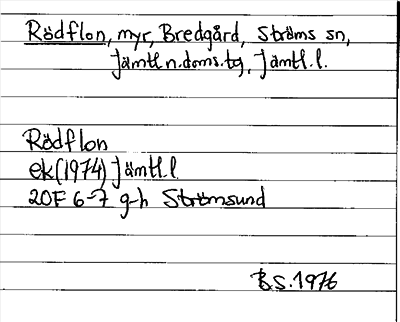 Rödflon, myr, Bredgård, Ströms sn,
Jämtl.n.doms.tg, Jämtl.l.
Rödflon
ek(1974) Jämtl.l
20F 6-7 g-h Strömsund
B.S.1976